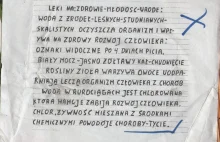 LEKI NA: ZDROWIE-MŁODOŚĆ-URODĘ:
WODA Z ŹRÓDEŁ-LEŚNYCH-STUDNIANYCH-
SKALISTYCH OCZYSZCZA ORGANIZM I WPŁ-
YWA NA ZDROWY ROZWÓJ CZŁOWIEKA:
OZNAKI WIDOCZNE PO 4 DNIACH PICIA,
BIAŁY MOCZ-JASNO ŻÓŁTAWY KAŁ-CHUDNIĘCIE
ROŚLINY ZIOŁA WARZYWA OWOCE UODPA-
RNIAJĄ LECZĄ ORGANIZM CZŁOWIEKA Z CHORÓB
WODA W RUROCIĄGACH JEST CHLOROWANA
KTÓRA HAMUJE ZABIJA ROZWÓJ CZŁOWIEKA.
CHLOR, ŻYWNOŚĆ MIESZANA Z ŚRODKAMI
CHEMICZNYMI POWODUJE CHOROBY-TYCIE.